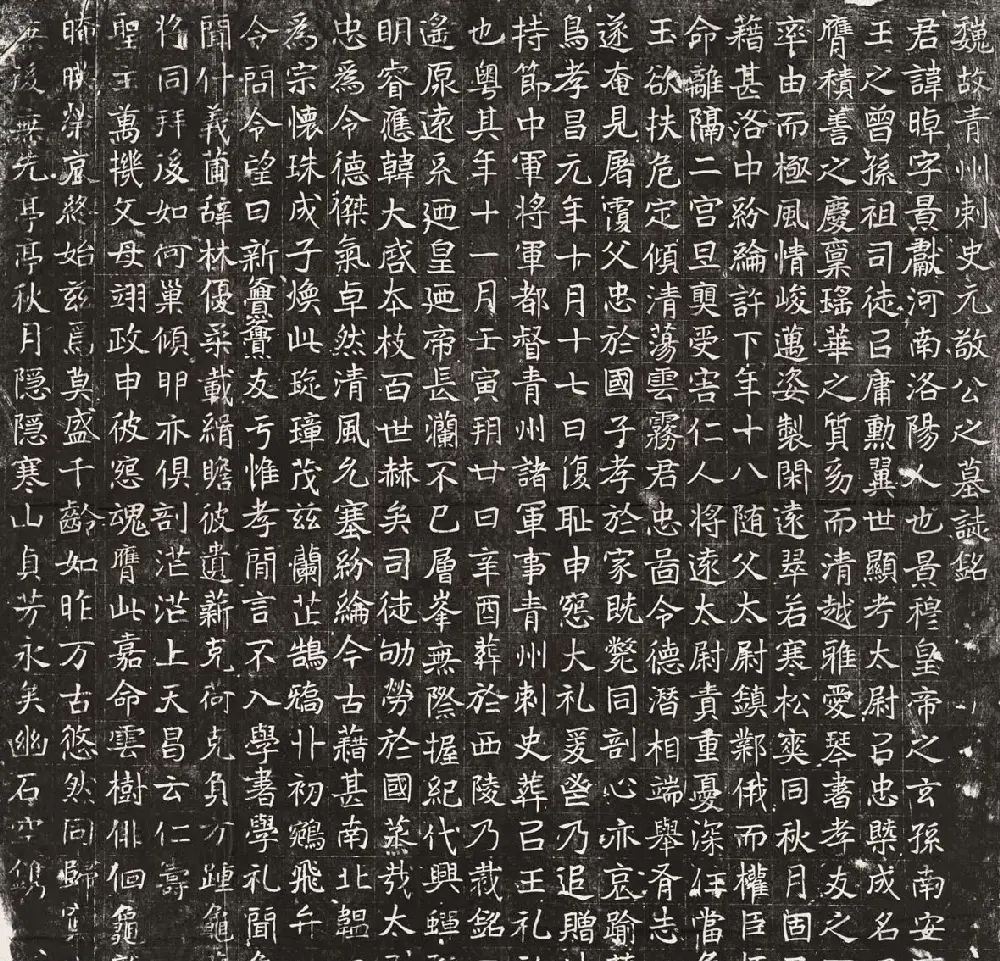 魏故青州刺史元敬公之墓誌銘
君諱暐字景獻河南洛陽人也景穆皇帝之玄孫南安
王之曾孫祖司徒㠯庸勲翼世顯考太尉㠯忠槩成名
膺積善之慶稟瑤華之質㓜而清越雅愛琴書孝友之
率由而極風情峻邁姿製閑遠翠若寒松奭同秋月固
藉甚洛中紛綸許下年十八随父太尉鎮鄴俄而權臣
命離隔二宫旦奭受害仁人將遠太尉責重憂深任當
玉欲扶危定傾清蕩雲霧君忠啚令德潜相端舉脊志
遂奄見屠霣父忠於國子孝於家既斃同剖心亦哀踰
烏孝昌元年十月十七日復耻申寃大礼爰啓乃追贈
持節中軍将軍都督青州諸軍事青州刺史葬㠯王礼
也粤其年十一月壬寅朔廿日辛酉葬於西陵乃裁銘
遙原遠系廼皇廼帝長瀾不已層峯無際握紀代興
明睿應韓大啓夲枝百世赫矣司徒劬勞於國蒸㦲太
忠爲令德傑氣卓然清風允塞紛綸今古藉甚南北韞
爲宗懷珠成子煥此琁璋茂兹蘭芷鵠鴞廾初鵷飛弁
令問令望曰新友亏惟孝閒言不入學書學礼聞
聞什義菌辭林優柔載縟瞻彼遺薪克荷克負方踵龜
将同拜後如何巢傾卵亦俱剖茫茫上天昌云仁壽
聖主萬機文母翊政申彼寃魂膺此嘉命雲樹俳佪龜
晦朕榮哀終始兹焉莫盛千齡如昨万古悠然同歸
無後無先亭亭秋月隠隠寒山貞芳永矣幽石空鐫